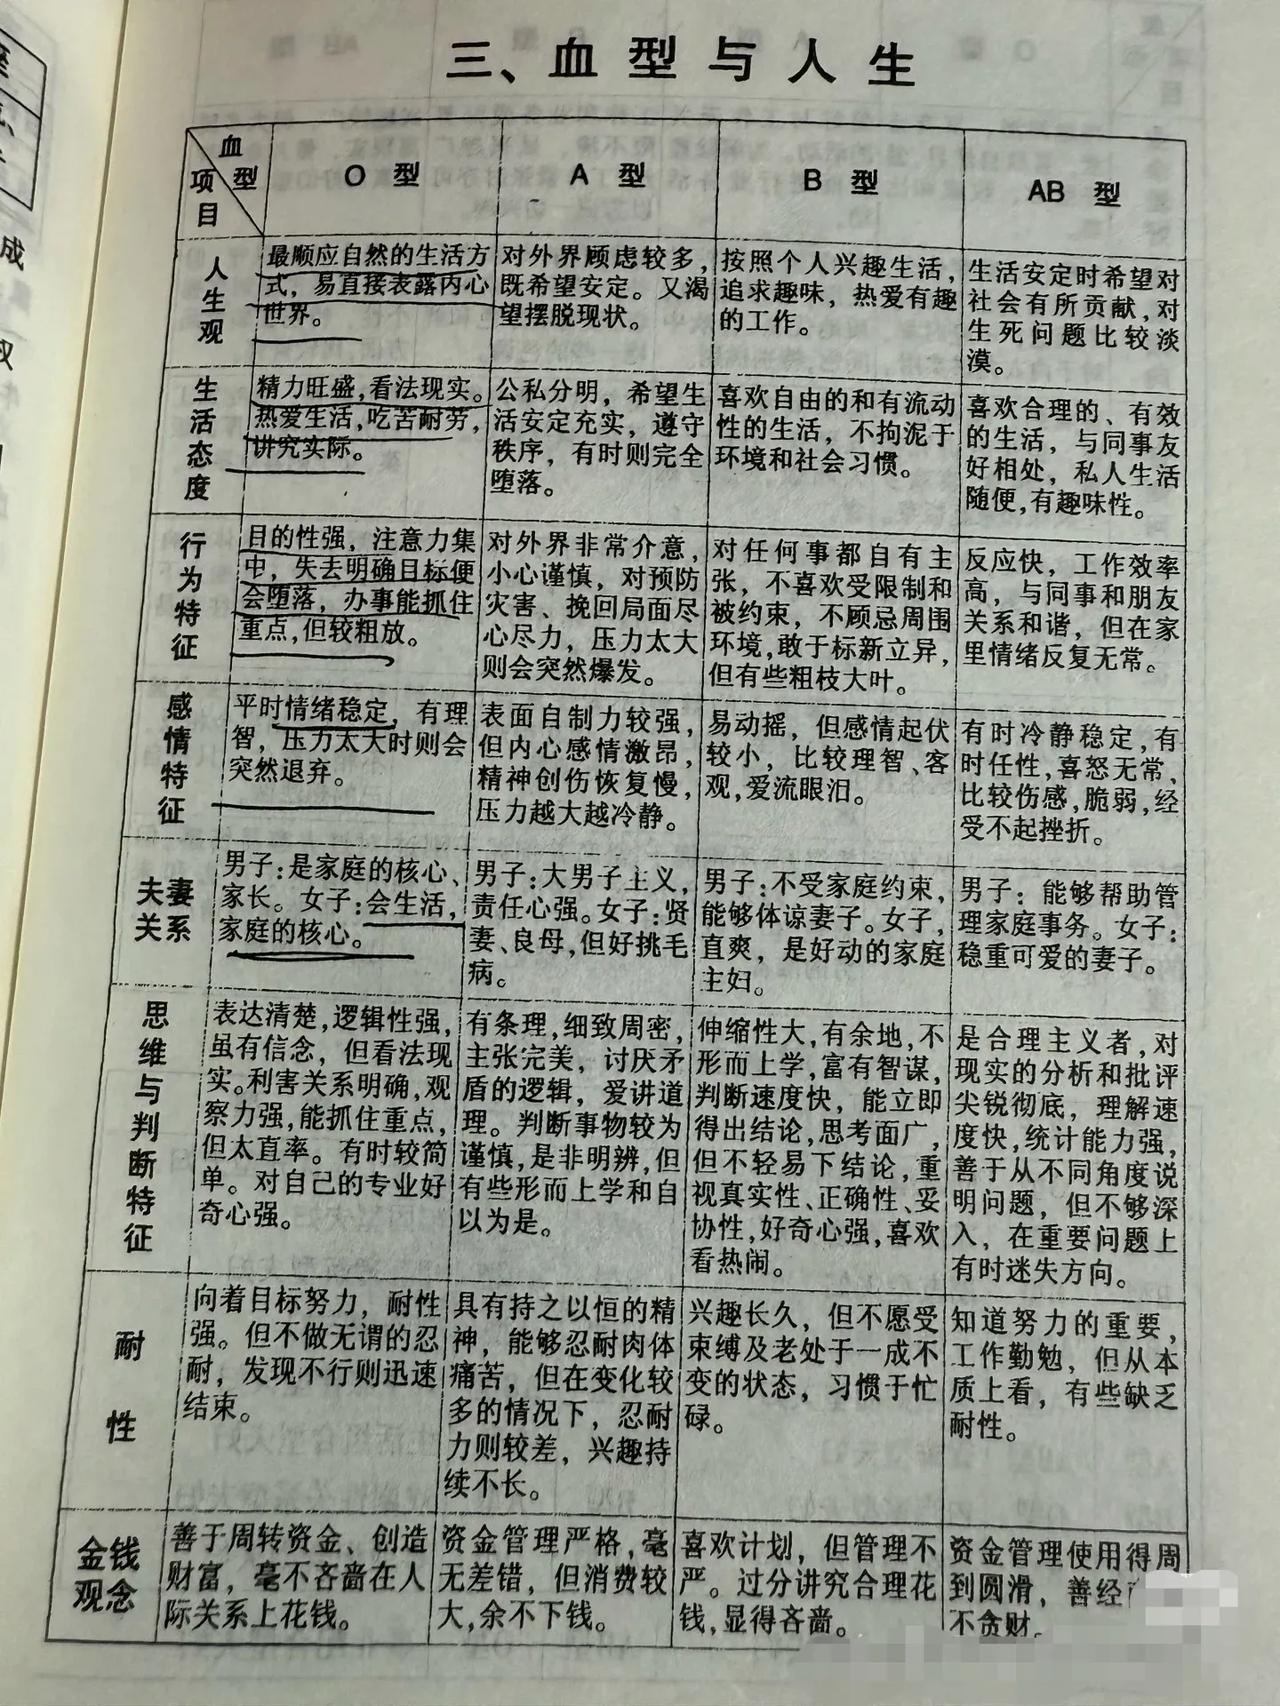 三、血型与人生
血型
项目
O 型
A 型
B 型
AB 型
人生观
最顺应自然的生活方
式，易直接表露内心
世界。
对外界顾虑较多，
既希望安定。又渴
望摆脱现状。
按照个人兴趣生活，
追求趣味，热爱有趣
的工作。
生活安定时希望对
社会有所贡献，对
生死问题比较淡
漠。
生活态度
精力旺盛，看法现实。
热爱生活，吃苦耐劳，
讲究实际。
公私分明，希望生
活安定充实，遵守
秩序，有时则完全
堕落。
喜欢自由的和有流动
性的生活，不拘泥于
环境和社会习惯。
喜欢合理的、有效
的生活，与同事友
好相处，私人生活
随便，有趣味性。
行为特征
目的性强，注意力集
中，失去明确目标便
会堕落，办事能抓住
重点，但较粗放。
对外界非常介意，
小心谨慎，对预防
灾害、挽回局面尽
心尽力，压力太大
则会突然爆发。
对任何事都自有主
张，不喜欢受限制和
被约束，不顾忌周围
环境，敢于标新立异，
但有些粗枝大叶。
反应快，工作效率
高，与同事和朋友
关系和谐，但在家
里情绪反复无常。
感情特征
平时情绪稳定，有理
智，压力太大时则会
突然退弃。
表面自制力较强，
但内心感情激昂，
精神创伤恢复慢，
压力越大越冷静。
易动摇，但感情起伏
较小，比较理智、客
观，爱流眼泪。
有时冷静稳定，有
时任性，喜怒无常，
比较伤感，脆弱，经
受不起挫折。
夫妻
关系
男子：是家庭的核心、
家长。女子：会生活，
家庭的核心。
男子：大男子主义，
责任心强。女子：贤
妻、良母，但好挑毛
病。
男子：不受家庭约束，
能够体谅妻子。女子，
直爽，是好动的家庭
主妇。
男子：能够帮助管
理家庭事务。女子：
稳重可爱的妻子。
思维与判断特征
表达清楚，逻辑性强，
虽有信念，但看法现
实。利害关系明确，观
察力强，能抓住重点，
但太直率。有时较简
单。对自己的专业好
奇心强。
有条理，细致周密，
主张完美，讨厌矛
盾的逻辑，爱讲道
理。判断事物较为
谨慎，是非明辨，但
有些形而上学和自
以为是。
伸缩性大，有余地，不
形而上学，富有智谋，
判断速度快，能立即
得出结论，思考面广，
但不轻易下结论，重
视真实性、正确性、妥
协性，好奇心强，喜欢
看热闹。
是合理主义者，对
现实的分析和批评
尖锐彻底，理解速
度快，统计能力强，
善于从不同角度说
明问题，但不够深
入，在重要问题上
有时迷失方向。
耐性
向着目标努力，耐性
强。但不做无谓的忍
耐，发现不行则迅速
结束。
具有持之以恒的精
神，能够忍耐肉体
痛苦，但在变化较
多的情况下，忍耐
力则较差，兴趣持
续不长。
兴趣长久，但不愿受
束缚及老处于一成不
变的状态，习惯于忙
碌。
知道努力的重要，
工作勤勉，但从本
质上看，有些缺乏
耐性。
金钱
观念
善于周转资金、创造
财富，毫不吝啬在人
际关系上花钱。
资金管理严格，毫
无差错，但消费较
大，余不下钱。
喜欢计划，但管理不
严。过分讲究合理花
钱，显得吝啬。
资金管理使用得周
到圆滑，善经
不贪财。
成
权